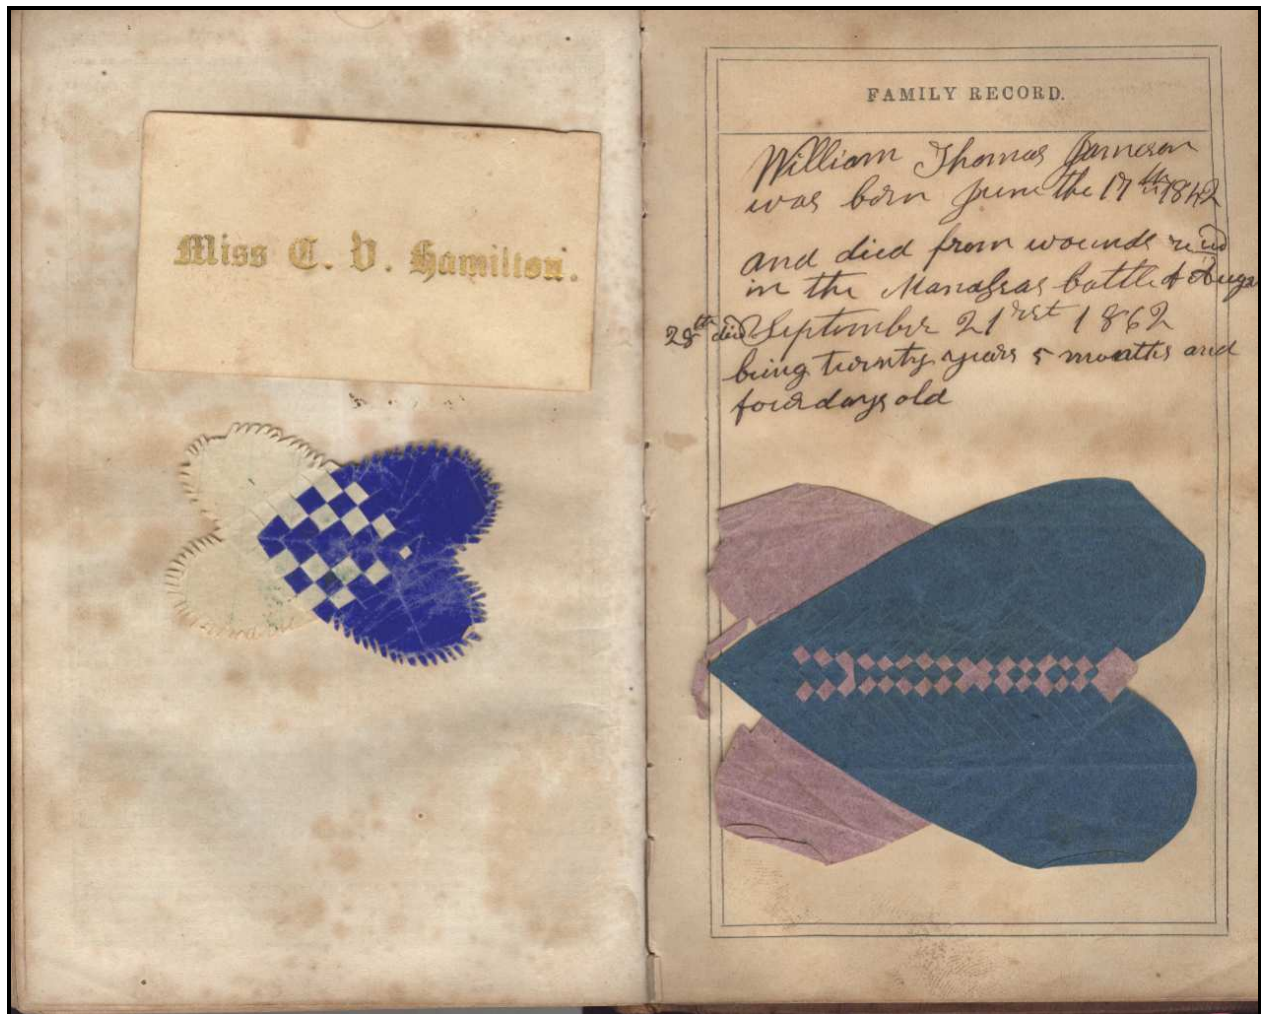 Miss C. V. Hamilton.
FAMILY RECORD.
William Thomas Jameson
was born June the 17th 1842
and died from wounds
in the Manassas battle Aug
28th died September 21rst 1862
being twenty years 5 months and
four days old